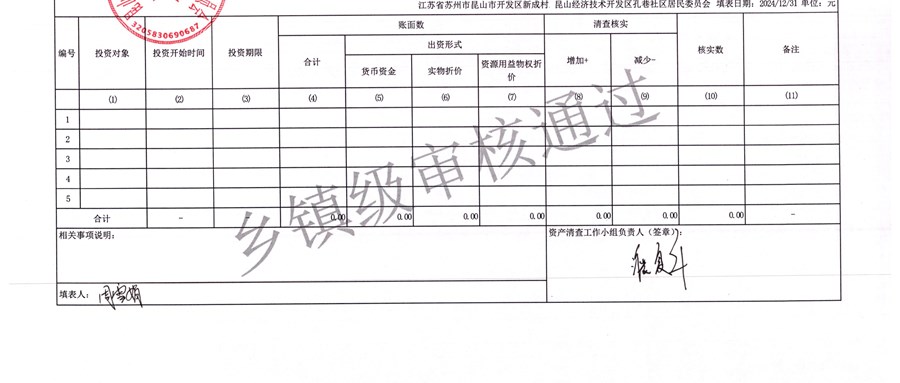 江苏省苏州市昆山市开发区新成村 昆山经济技术开发区孔巷社区居民委员会 填表日期：2024/12/31 单位：元
3205830690687
编号 投资对象 投资开始时间 投资期限 账面数 清查核实 核实数 备注
合计 出资形式 增加+ 减少-
货币资金 实物折价 资源用益物权折价
(1) (2) (3) (4) (5) (6) (7) (8) (9) (10) (11)
1
2
3
4
5
合计 - - 0.00 0.00 0.00 0.00 0.00 0.00 0.00 -
乡镇级审核通过
相关事项说明：
资产清查工作小组负责人（签章）：
填表人：周雪娟